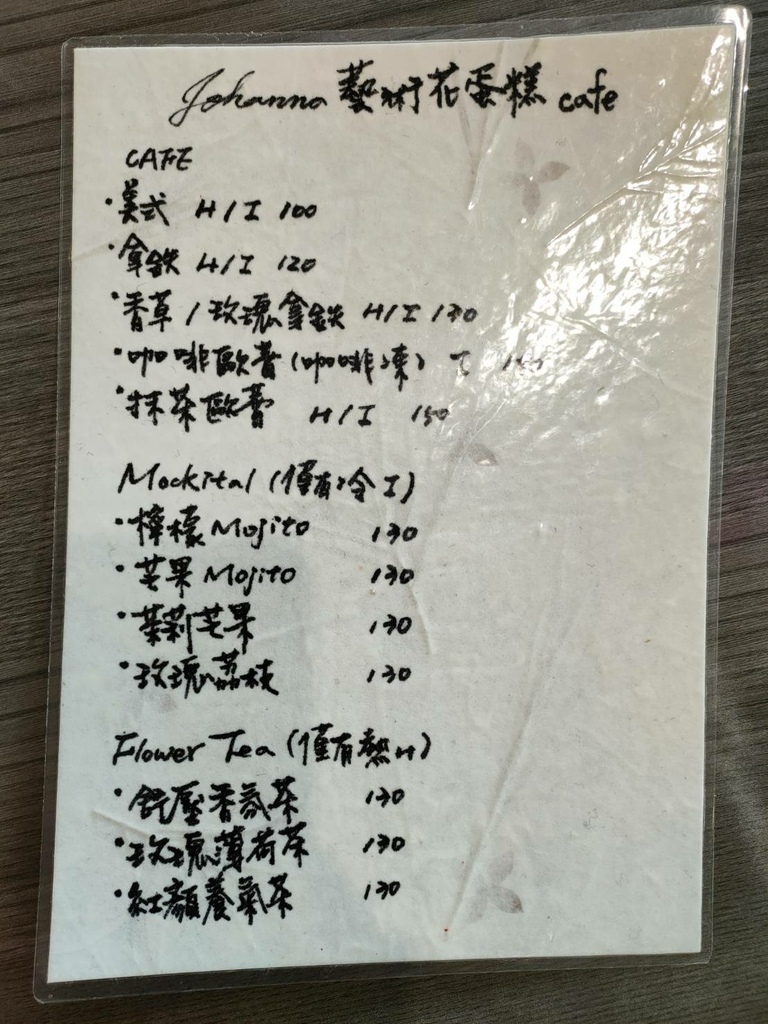 Johanna 藝術花蛋糕 cafe
CAFE
·美式 H/I 100
·拿鐵 H/I 120
·香草/玫瑰拿鐵 H/I 130
·咖啡歐蕾(咖啡凍) I
·抹茶歐蕾 H/I 150
Mockital (僅有冷I)
·檸檬Mojito 130
·芒果Mojito 130
·茉莉芒果 130
·玫瑰荔枝 130
Flower Tea (僅有熱H)
·舒壓香氛茶 130
·玫瑰薄荷茶 130
·紅顏養氣茶 130